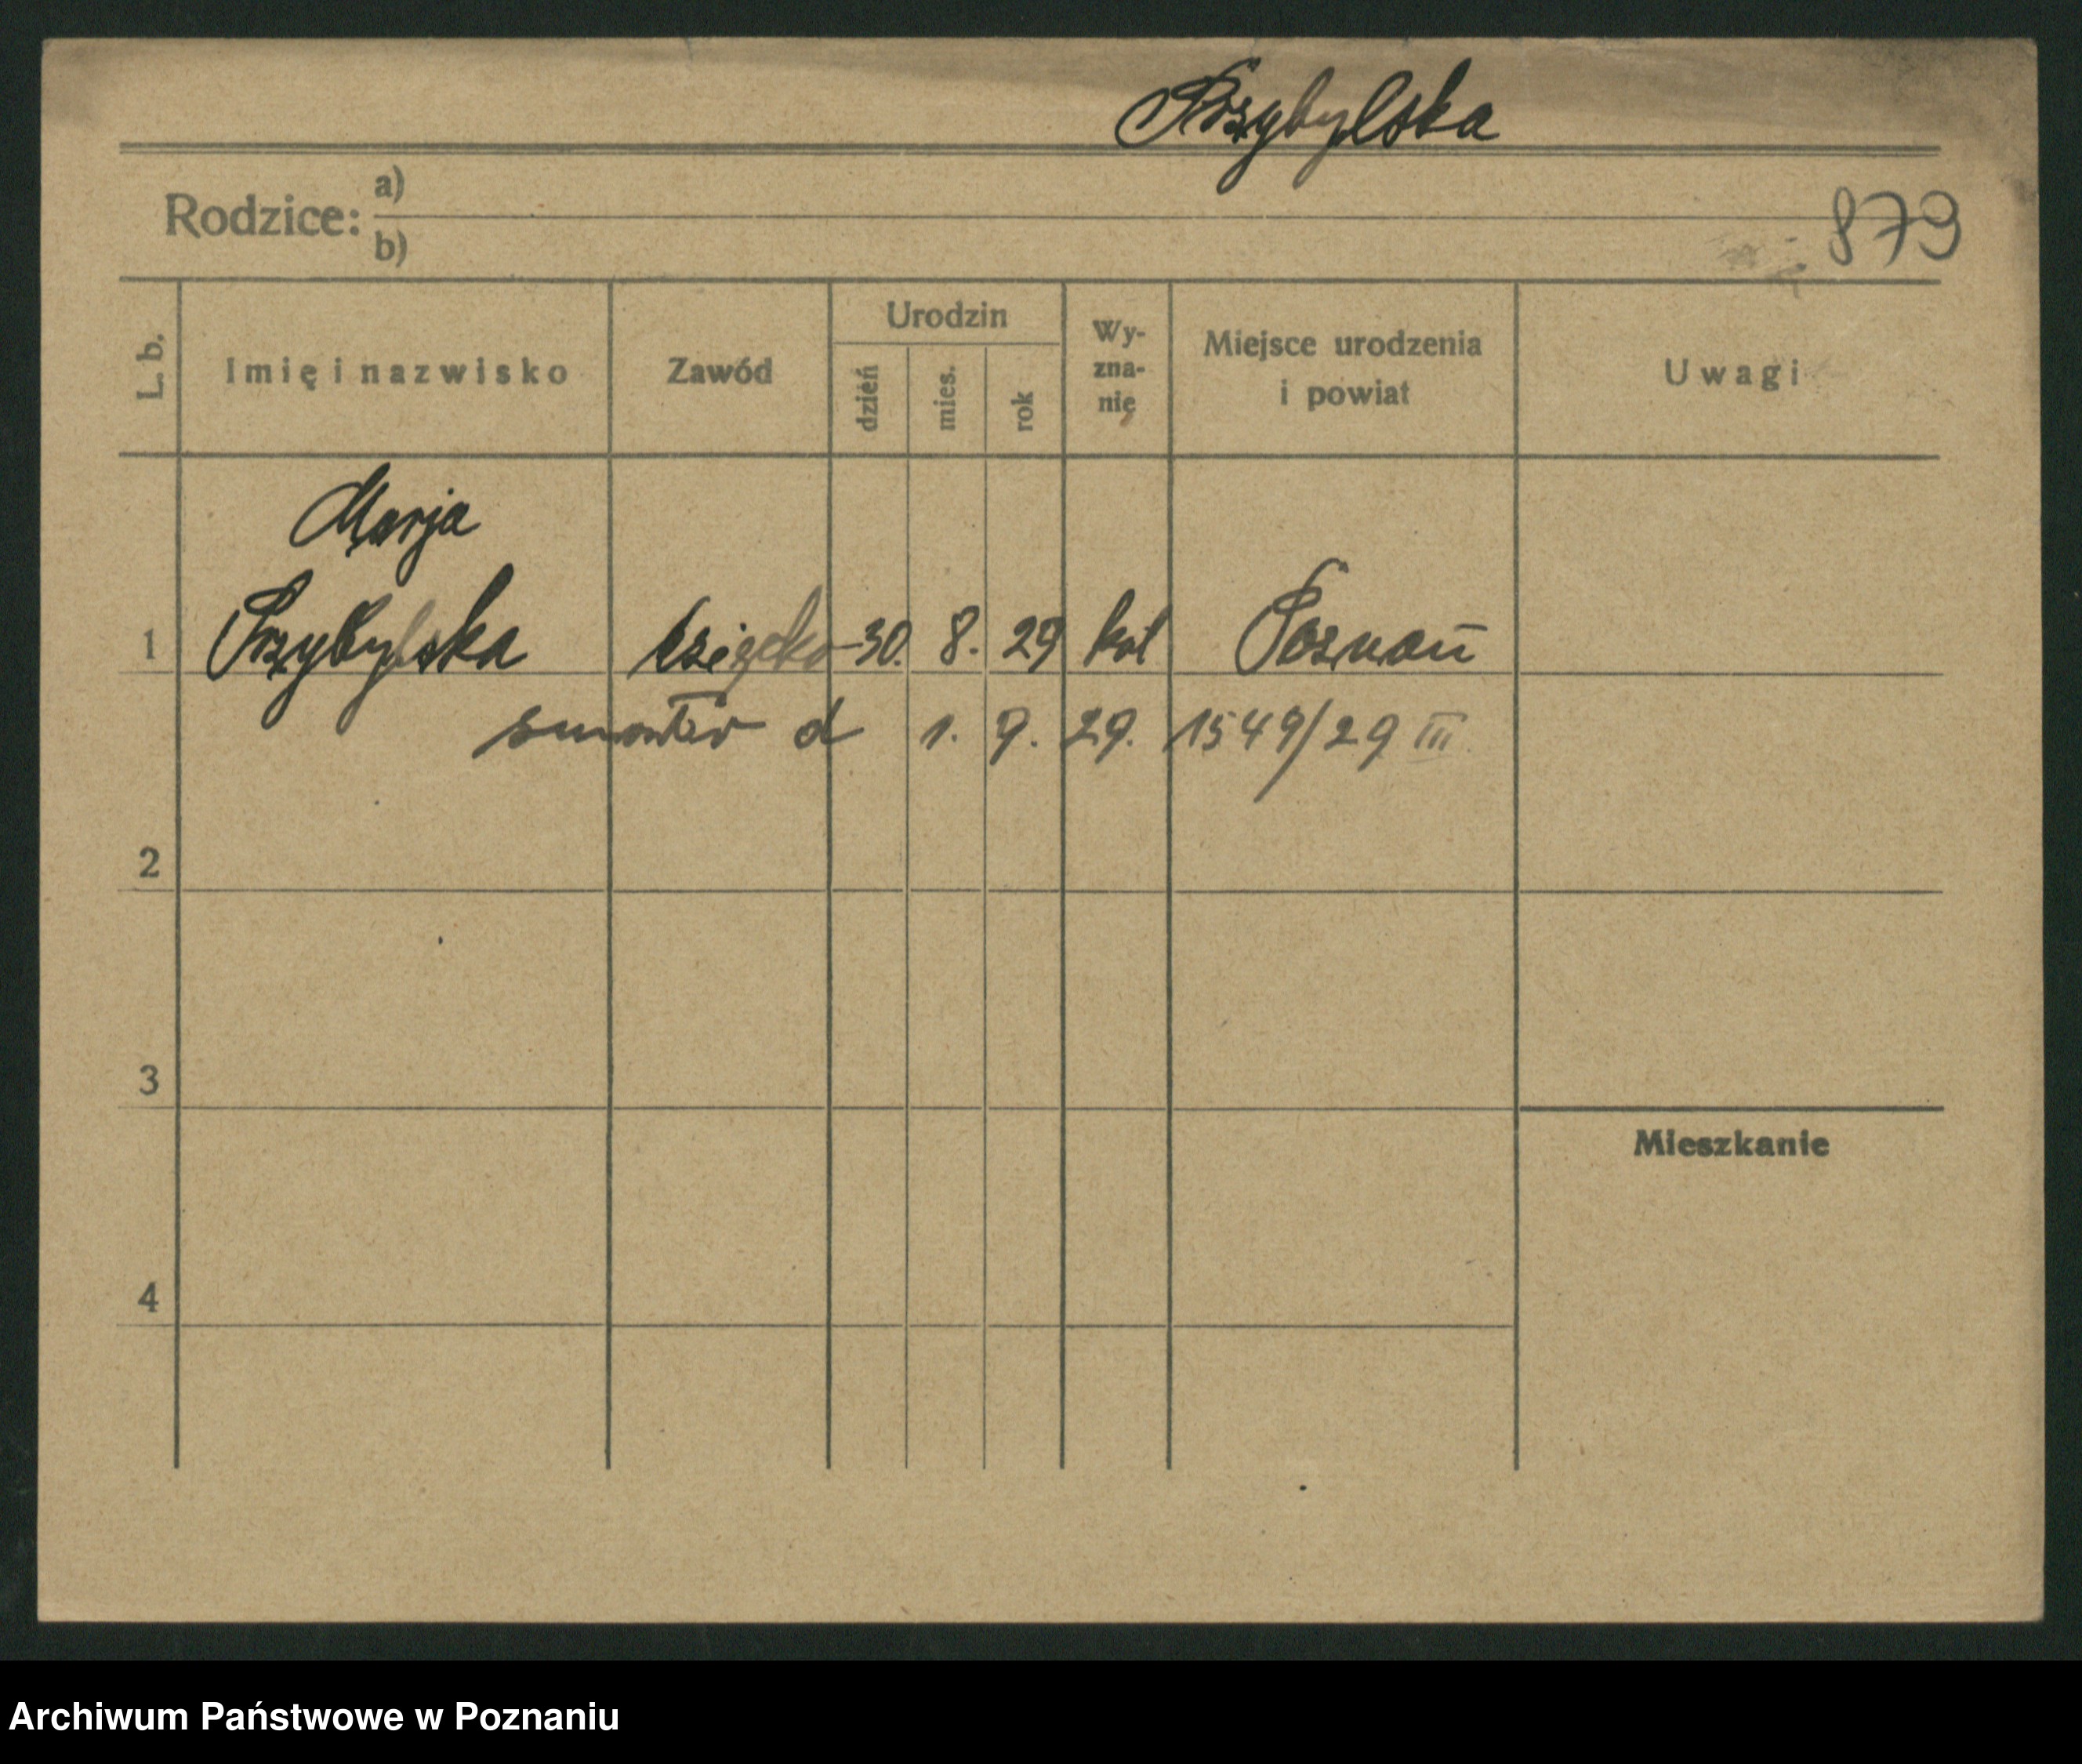 Przybylska
Rodzice: a)
b)
879
L. b.
Imię i nazwisko
Zawód
Urodzin
dzień
mies.
rok
Wy-
zna-
nie
Miejsce urodzenia
i powiat
Uwagi
Marja
1 Przybylska dziecko 30. 8. 29 kat Poznań
d 1. 9. 29. 1549/29 III
2
3
Mieszkanie
4
Archiwum Państwowe w Poznaniu